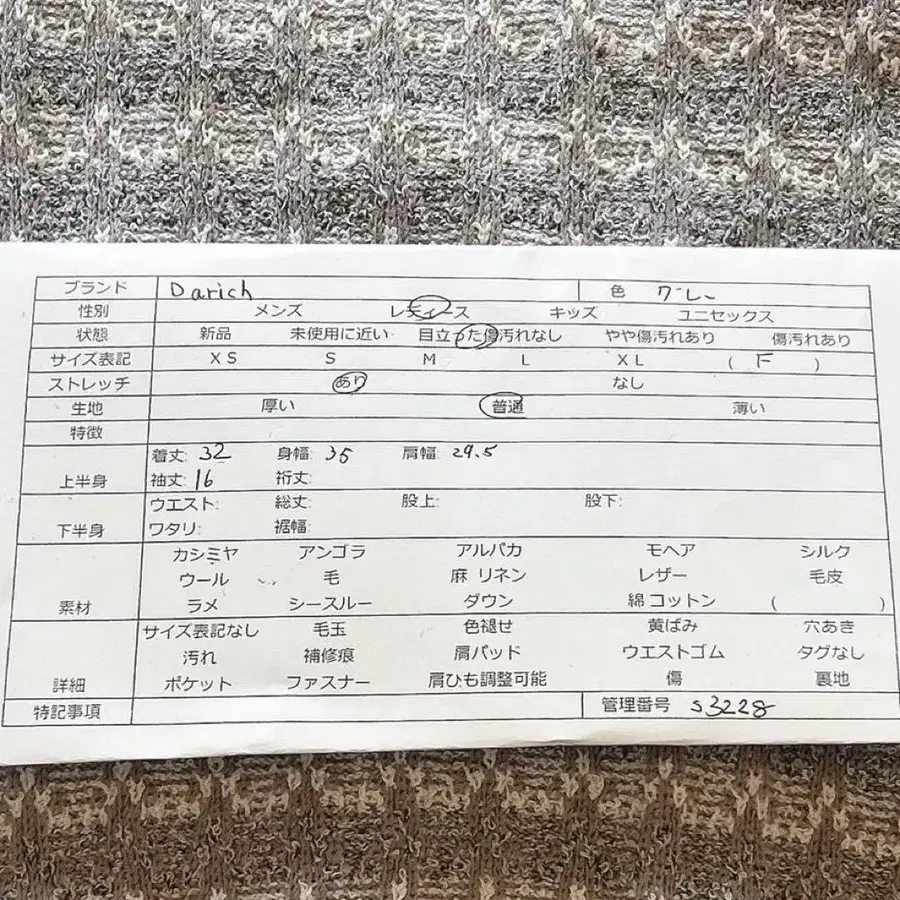 ブランド Darich 色 グレー
性別 メンズ レディース キッズ ユニセックス
状態 新品 未使用に近い 目立った傷汚れなし やや傷汚れあり 傷汚れあり
サイズ表記 XS S M L XL ( F )
ストレッチ あり なし
生地 厚い 普通 薄い
特徴
上半身 着丈: 32 身幅: 35 肩幅: 29.5
袖丈: 16 裄丈:
下半身 ウエスト: 総丈: 股上: 股下:
ワタリ: 裾幅:
素材 カシミヤ アンゴラ アルパカ モヘア シルク
ウール 毛 麻 リネン レザー 毛皮
ラメ シースルー ダウン 綿 コットン ( )
詳細 サイズ表記なし 毛玉 色褪せ 黄ばみ 穴あき
汚れ 補修痕 肩パッド ウエストゴム タグなし
ポケット ファスナー 肩ひも調整可能 傷 裏地
特記事項 管理番号 s3228